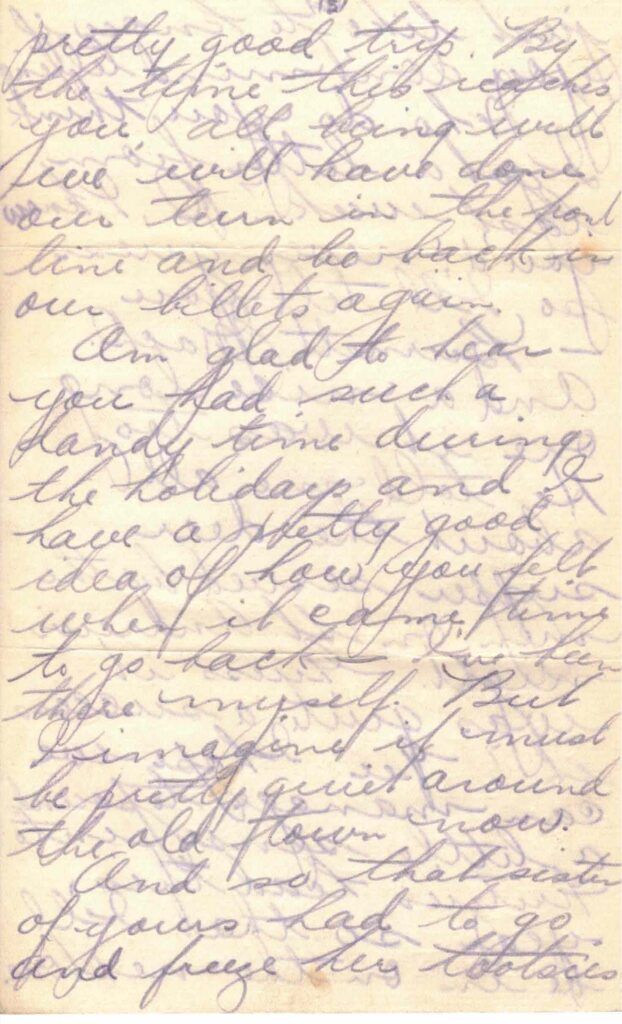 (5)
pretty good trip. By
the time this reaches
you, all being well
we will have done
our turn in the front
line and be back in
our billets again.
Am glad to hear
you had such a
dandy time during
the holidays and I
have a pretty good
idea of how you felt
when it came time
to go back – I've been
there myself. But
I imagine it must
be pretty quiet around
the old town now.
And so that sister
of yours had to go
and freeze her tootsies